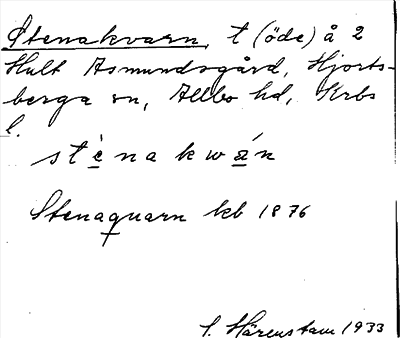 Stenakvarn, t (öde) å 2
Hult Asmundsgård, Hjorts-
berga sn, Allbo hd, Krbs
l.
stènakwán
Stenaquarn kb 1876
S. Härenstam 1933